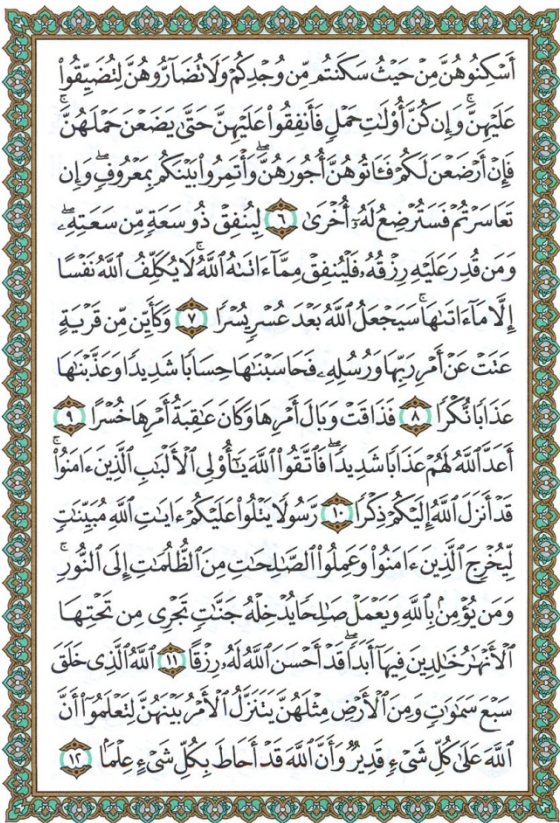 أَسْكِنُوهُنَّ مِنْ حَيْثُ سَكَنتُم مِّن وُجْدِكُمْ وَلَا تُضَآرُّوهُنَّ لِتُضَيِّقُوا۟
عَلَيْهِنَّ ۚ وَإِن كُنَّ أُو۟لَٰتِ حَمْلٍ فَأَنفِقُوا۟ عَلَيْهِنَّ حَتَّىٰ يَضَعْنَ حَمْلَهُنَّ ۚ
فَإِنْ أَرْضَعْنَ لَكُمْ فَـَٔاتُوهُنَّ أُجُورَهُنَّ ۖ وَأْتَمِرُوا۟ بَيْنَكُم بِمَعْرُوفٍ ۖ وَإِن
تَعَاسَرْتُمْ فَسَتُرْضِعُ لَهُۥٓ أُخْرَىٰ ٦ لِيُنفِقْ ذُو سَعَةٍ مِّن سَعَتِهِۦ ۖ
وَمَن قُدِرَ عَلَيْهِ رِزْقُهُۥ فَلْيُنفِقْ مِمَّآ ءَاتَىٰهُ ٱللَّهُ ۚ لَا يُكَلِّفُ ٱللَّهُ نَفْسًا
إِلَّا مَآ ءَاتَىٰهَا ۚ سَيَجْعَلُ ٱللَّهُ بَعْدَ عُسْرٍ يُسْرًا ٧ وَكَأَيِّن مِّن قَرْيَةٍ
عَتَتْ عَنْ أَمْرِ رَبِّهَا وَرُسُلِهِۦ فَحَاسَبْنَٰهَا حِسَابًا شَدِيدًا وَعَذَّبْنَٰهَا
عَذَابًا نُّكْرًا ٨ فَذَاقَتْ وَبَالَ أَمْرِهَا وَكَانَ عَٰقِبَةُ أَمْرِهَا خُسْرًا ٩
أَعَدَّ ٱللَّهُ لَهُمْ عَذَابًا شَدِيدًا ۖ فَٱتَّقُوا۟ ٱللَّهَ يَٰٓأُو۟لِى ٱلْأَلْبَٰبِ ٱلَّذِينَ ءَامَنُوا۟ ۚ
قَدْ أَنزَلَ ٱللَّهُ إِلَيْكُمْ ذِكْرًا ١٠ رَّسُولًا يَتْلُوا۟ عَلَيْكُمْ ءَايَٰتِ ٱللَّهِ مُبَيِّنَٰتٍ
لِّيُخْرِجَ ٱلَّذِينَ ءَامَنُوا۟ وَعَمِلُوا۟ ٱلصَّٰلِحَٰتِ مِنَ ٱلظُّلُمَٰتِ إِلَى ٱلنُّورِ ۚ
وَمَن يُؤْمِنۢ بِٱللَّهِ وَيَعْمَلْ صَٰلِحًا يُدْخِلْهُ جَنَّٰتٍ تَجْرِى مِن تَحْتِهَا
ٱلْأَنْهَٰرُ خَٰلِدِينَ فِيهَآ أَبَدًا ۖ قَدْ أَحْسَنَ ٱللَّهُ لَهُۥ رِزْقًا ١١ ٱللَّهُ ٱلَّذِى خَلَقَ
سَبْعَ سَمَٰوَٰتٍ وَمِنَ ٱلْأَرْضِ مِثْلَهُنَّ يَتَنَزَّلُ ٱلْأَمْرُ بَيْنَهُنَّ لِتَعْلَمُوٓا۟ أَنَّ
ٱللَّهَ عَلَىٰ كُلِّ شَىْءٍ قَدِيرٌ وَأَنَّ ٱللَّهَ قَدْ أَحَاطَ بِكُلِّ شَىْءٍ عِلْمًۢا ١٢